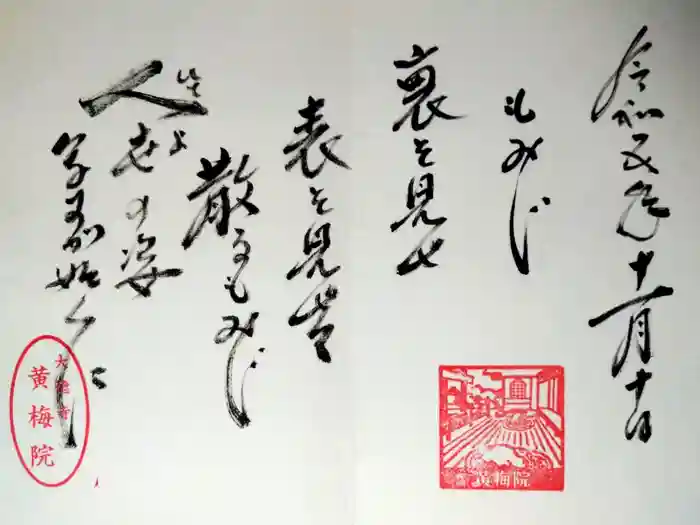 令和五年十一月十日
もみじ
裏を見せ
表を見せ
散るもみじ
人
世の姿
大徳寺
黄梅院
黄梅院